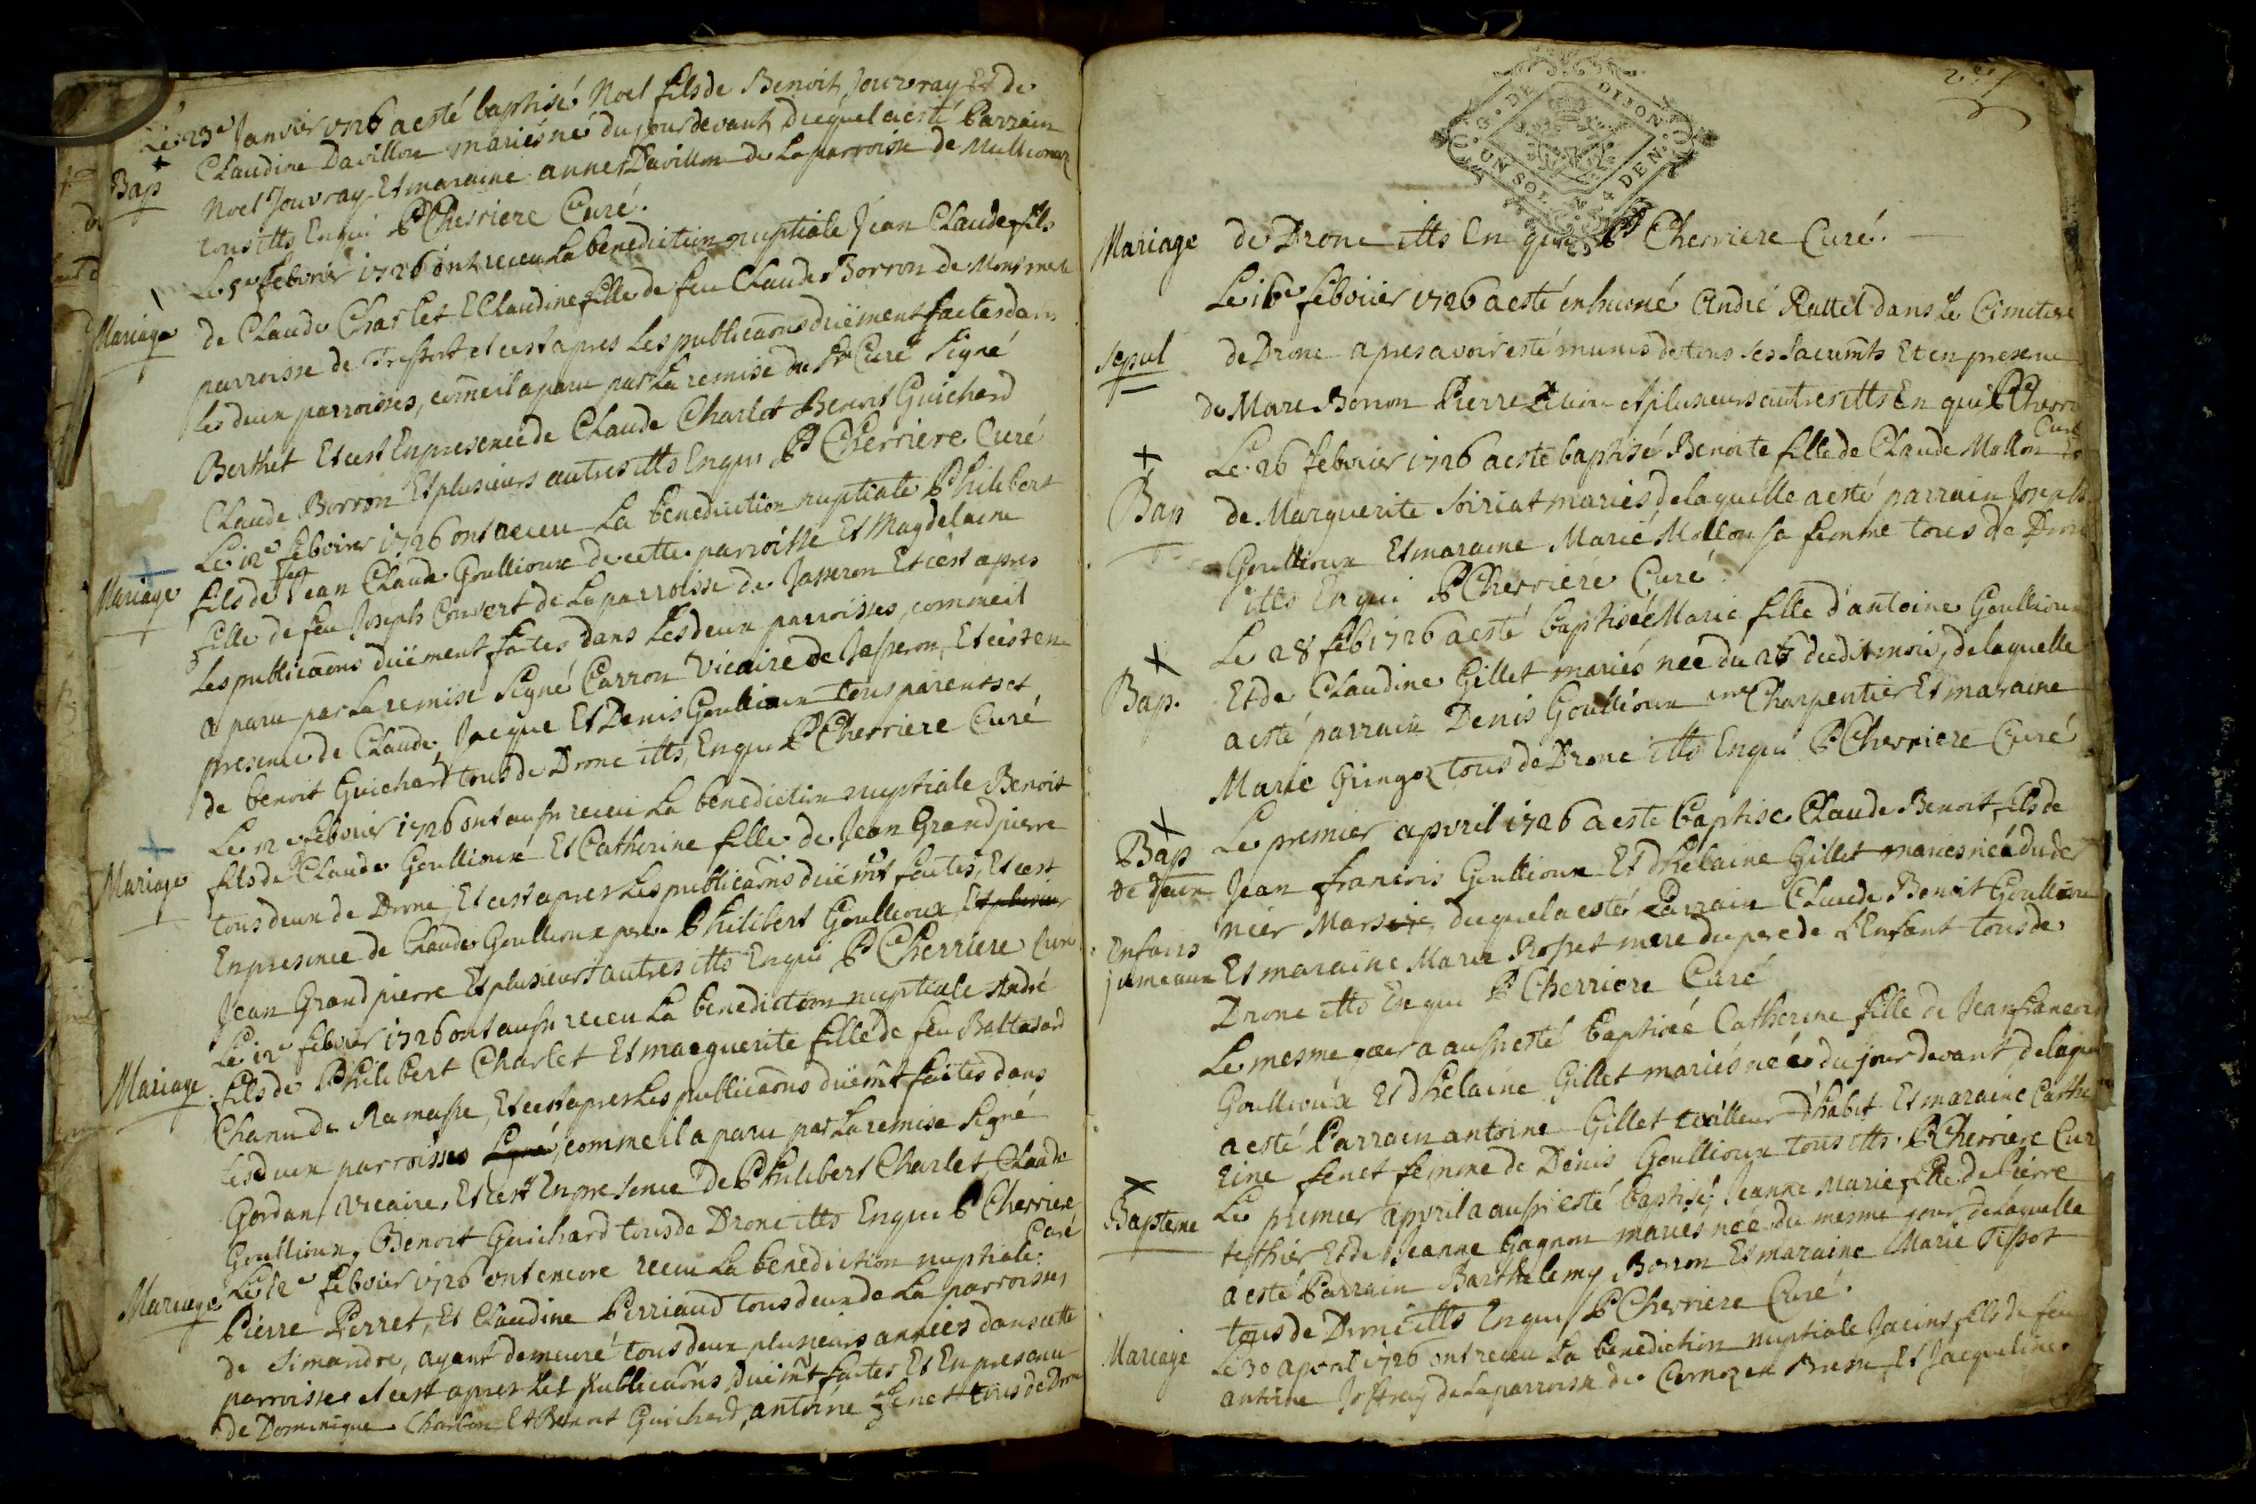 Le 23e Janvier 1726 a esté baptisé Noel fils de Benoit Jouvray Et de
Bap
Claudine Davillon mariés né du jour devant Duquel a esté Parrain
Noel Jouvray Et maraine anne Davillon de La parroisse de
tous ills Enqui P Cherriere Curé.
Le 5e febvrier 1726 ont receu La benediction nuptiale Jean Claude fils
Mariage
de Claude Charlet E Claudine fille de feu Claude Borron de
parroisse de Treffort et cest apres Les publicaõns düement faites dans
les deux parroisses, com̃e il a paru par La remise du Sr Curé Signé
Berthet Et cest En presence de Claude Charlet Benoit Guichard
Claude Borron Et plusieurs autres ills Enqui P Cherriere Curé
Le 12e febvrier 1726 ont receu La benediction nuptiale Philibert
Mariage
fils de feu Jean Claude Goullioux de cette parroisse Et Magdelaine
fille de feu Joseph Convert de La parroisse de Jasseron Et cest apres
Les publicaõns düement faites dans Les deux parroisses, comme il
a paru par La remise Signé Carron Vicaire de Jasseron, Et cest en
presence de Claude, Jacque Et Denis Goullioux tous parents et
de benoit Guichard tous de Drone ills, Enqui P Cherriere Curé
Le 12e febvrier 1726 ont aussi receu La benediction nuptiale Benoit
Mariage
fils de Claude Goullioux Et Catherine fille de Jean Grandpierre
tous deux de Drone, Et cest apres Les publicaõns düem̃t faites, Et cest
En presence de Claude Goullioux Philibert Goullioux, Et plusieurs
Jean Grand pierre Et plusieurs autres ills Enqui P Cherriere Curé
Le 12e febvrier 1726 ont aussi receu La benediction nuptiale André
Mariage
fils de Philibert Charlet Et marguerite fille de feu Baltasard
Chanu de Ramasse, Et cest apres Les publicaõns düem̃t faites dans
Les deux parroisses Signé, comme il a paru par La remise Signé
Gordan Vicaire, Et cest En presence de Philibert Charlet Claude
Goullioux, Benoit Guichard tous de Drone ills Enqui P Cherriere
Curé
Le 12e febvrier 1726 ont encore receu La benediction nuptiale
Mariage
Pierre Perret, Et Claudine Perriaud tous deux de La parroisse
de Simandre, ayant demeuré tous deux plusieurs années dans cette
parroisse et cest apres Les publicaõns düem̃t faites Et En presence
de Dominique Charbon Et Benoit Guichard, antoine fenet tous de Drone
UN SOL 4 DEN. G. DE DIJON
Mariage
de Drone ills Enqui P Cherriere Curé.
Le 16e febvrier 1726 a esté enhumé André Rattet dans Le Cimetiere
Sepul
de Drone apres avoir esté munis de tous ses sacrem̃ts Et en presence
de Marc Borron Pierre et plusieurs autres ills Enqui P Cherriere
Curé
Le 26 febvrier 1726 a esté baptisé Benoite fille de Claude Mollon
Bap
de Marguerite Soiriat mariés de laquelle a esté parrain Joseph
Goullioux Et maraine Marie Mollon sa femme tous de Drone
ills Enqui P Cherriere Curé.
Le 28 feb 1726 a esté baptisée Marie fille d'antoine Goullioux
Bap.
Et de Claudine Gillet mariés née du 26 dudit mois, de laquelle
a esté parrain Denis Goullioux me Charpentier Et maraine
Marie Gringoz tous de Drone ills Enqui P Cherriere Curé
Le premier apvril 1726 a esté baptisé Claude Benoit fils de
Bap
de deux
Jean francois Goullioux Et D'helaine Gillet mariés né du der
nier Mars, duquel a esté Parrain Claude Benoit Goullioux
Enfans
jumeaux
Et maraine Marie Rosset mere du pere de l'Enfant tous de
Drone ills Enqui P Cherriere Curé
Le mesme jour a aussi esté baptisée Catherine fille de Jean francois
Goullioux Et D'helaine Gillet mariés née du jour devant de laquelle
a esté Parrain antoine Gillet tailleur D'habit Et maraine Cathe
rine fenet femme de Denis Goullioux tous ills. P Cherriere Curé
Le premier apvril a aussi esté baptisé Jeanne Marie fille de Pierre
Bapteme
testhier Et de Jeanne Gagnon mariés née du mesme jour de laquelle
a esté Parrain Barthelemy Borron Et maraine Marie Tissot
tous de Drone ills Enqui P Cherriere Curé.
Mariage
Le 30 apvril 1726 ont receu La benediction nuptiale Jacint fils de feu
antoine Joffray de La parroisse de Bresse, Et Jacqueline